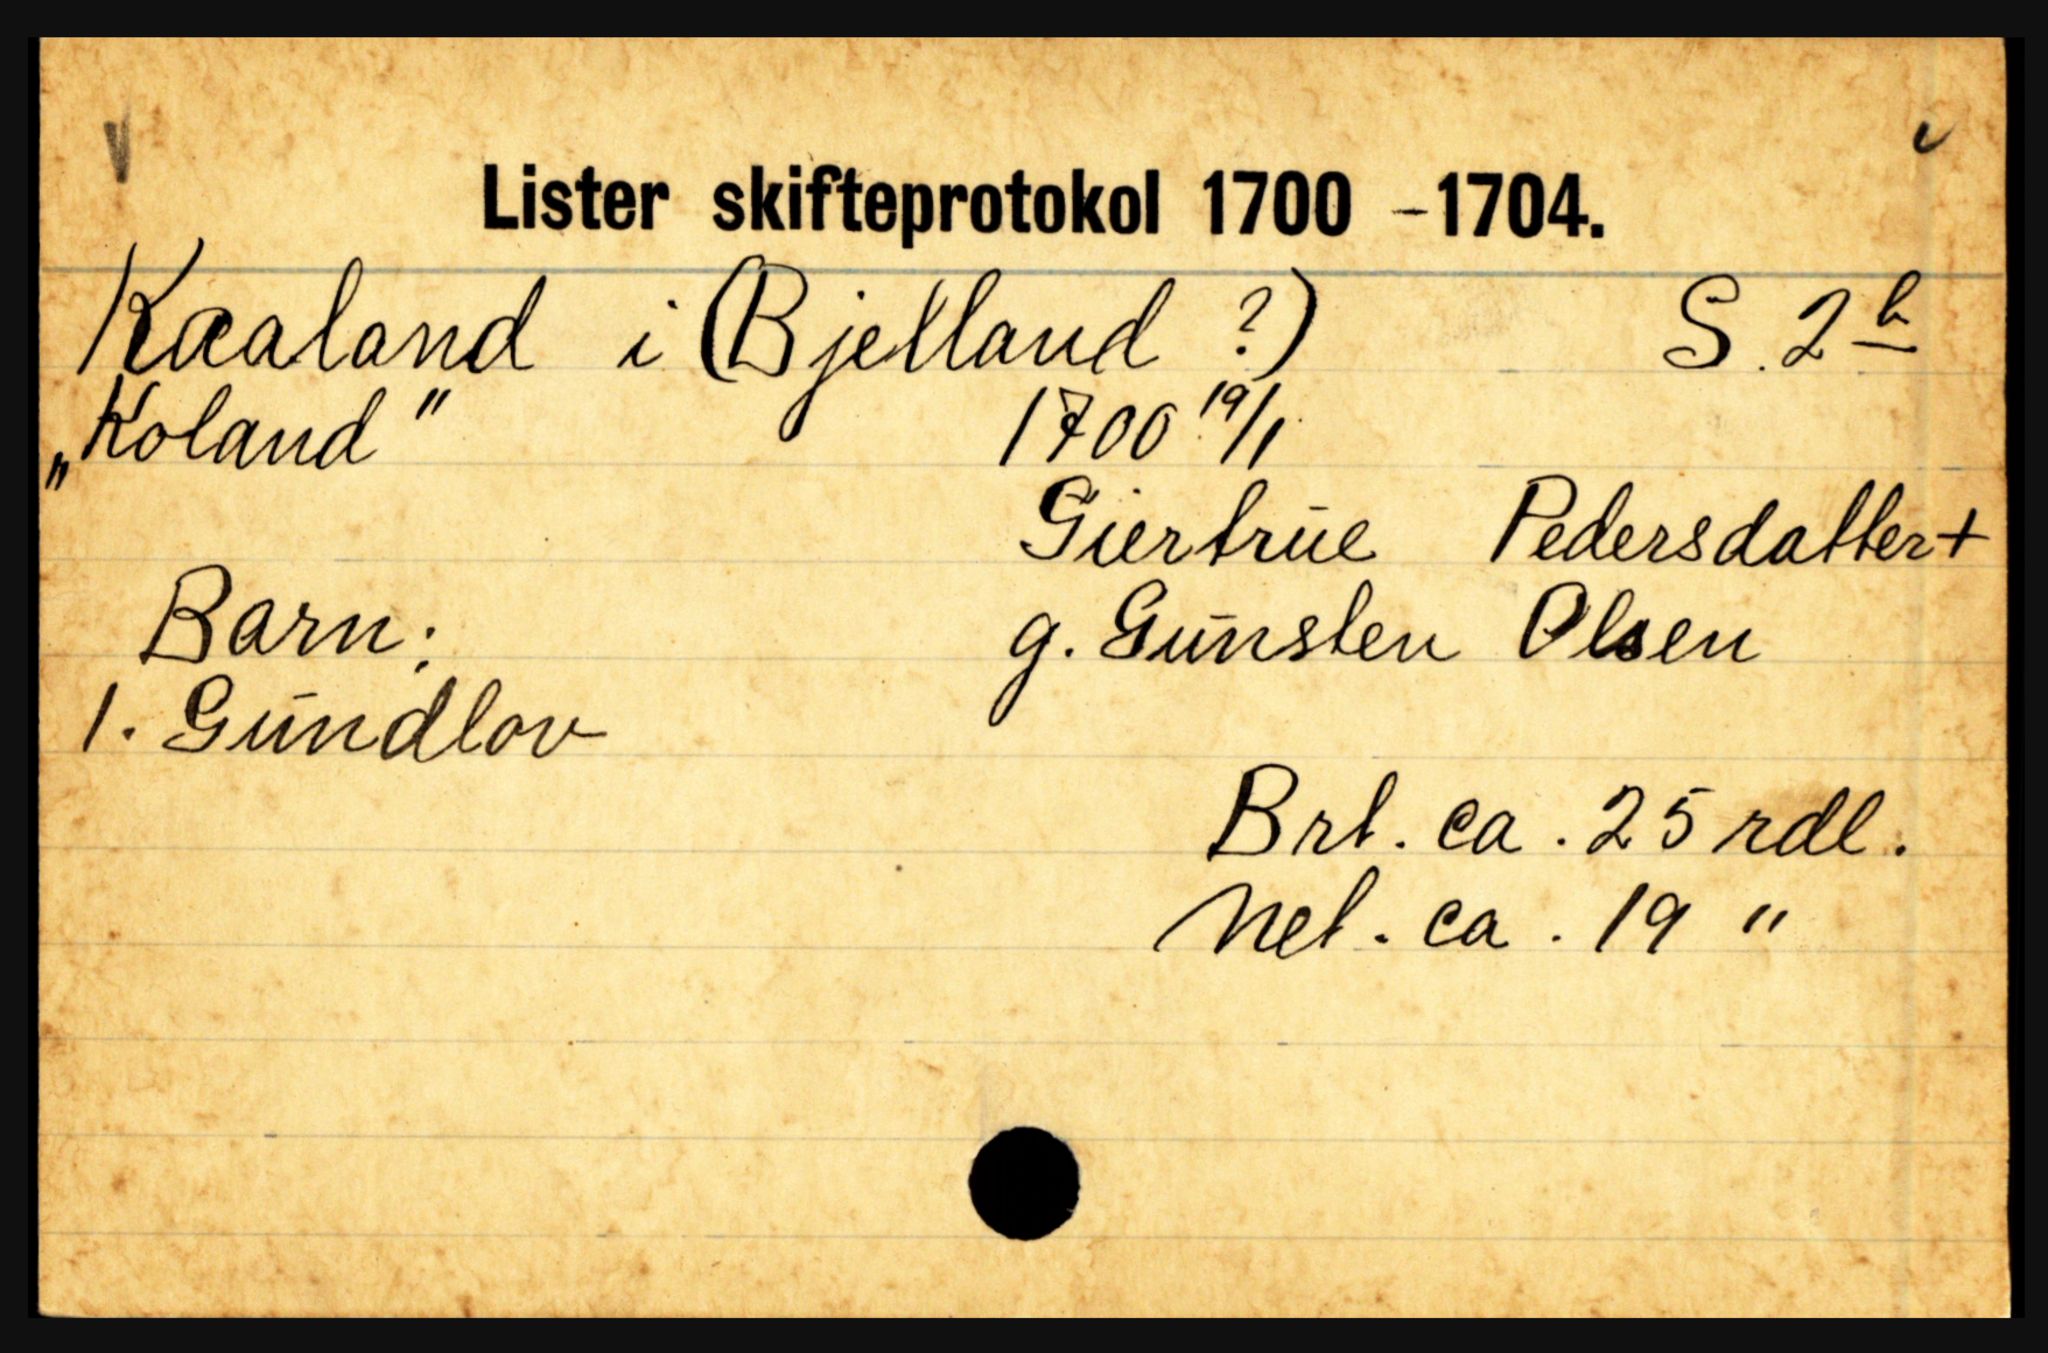 Lister skifteprotokol 1700 - 1704.
Kaaland i (Bjelland ?) S. 2b
„Koland" 1700 19/1
Giertrue Pedersdatter +
Barn: g. Gunsten Olsen
1. Gundlov
Brt. ca. 25 rdl.
Net. ca. 19 "